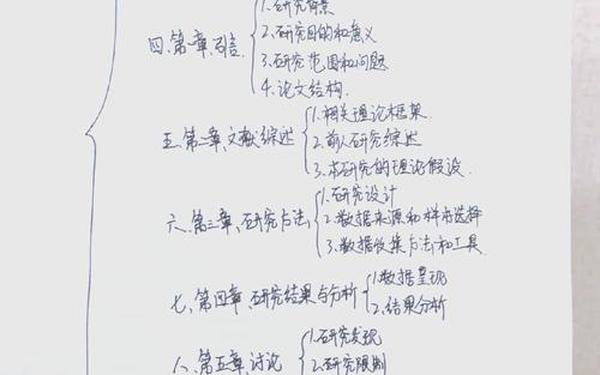 1.研究背景
四.第一章,引言
2.研究目的和意义
3.研究范围和问题
4.论文结构.
五.第二章,文献综述
1.相关理论框架.
2.前人研究综述
3.本研究的理论假设.
六.第三章,研究方法
1.研究设计
2.数据来源和样本选择
3.数据收集方法和工具.
七,第四章,研究结果与分析
1.数据呈现
2.结果分析
八.第五章,讨论
1.研究发现
2.研究限制